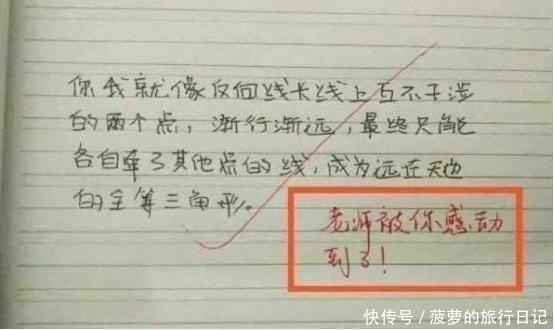 你我就像反向延长线上互不干涉
的两个点，渐行渐远，最终只能
各自牵了其他点的线，成为远在天边
的全等三角形。
老师被你感动
到了！
快传号／菠萝的旅行日记